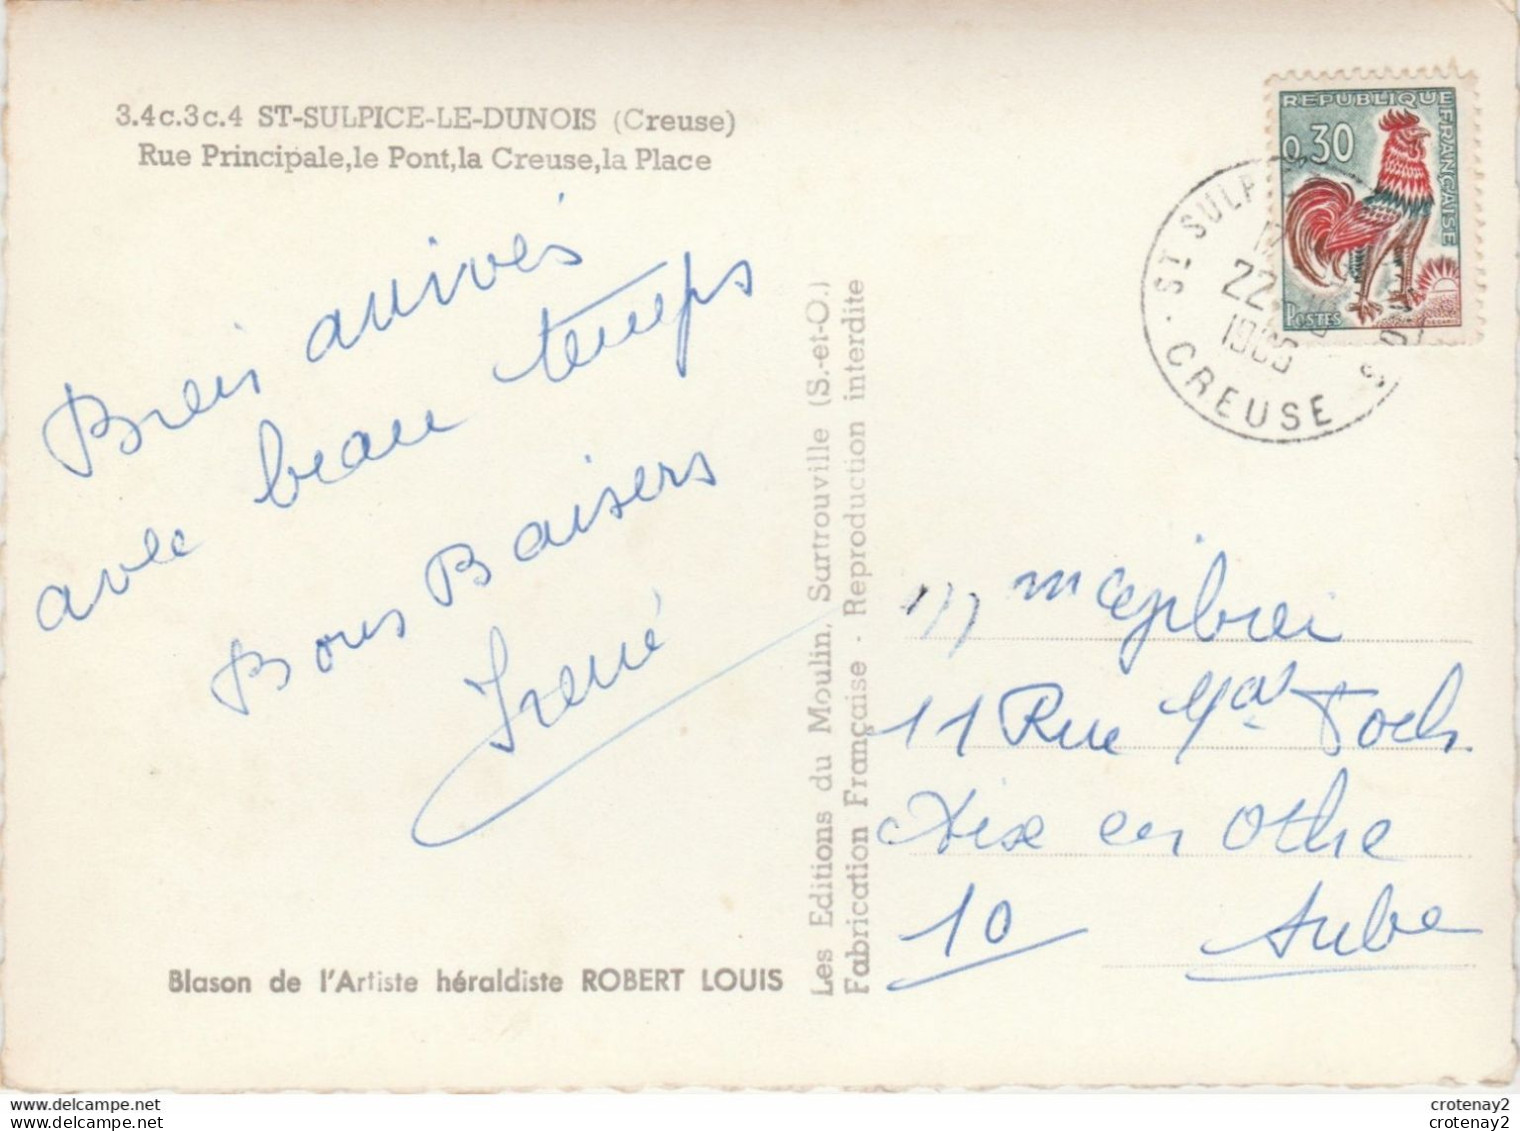 3.4c.3c.4 ST-SULPICE-LE-DUNOIS (Creuse)
Rue Principale, le Pont, la Creuse, la Place
Bien arrivés
avec beau temps
Bons Baisers
Irené
Blason de l'Artiste héraldiste ROBERT LOUIS
Les Editions du Moulin, Surtrouville (S.-et-O.)
Fabrication Française - Reproduction interdite
REPUBLIQUE FRANÇAISE
0,30
POSTES
ST SULP
22
CREUSE
11 Rue Mal Foch
Aix en Othe
10 Aube
delcampe.net
crotenay2
crotenay2